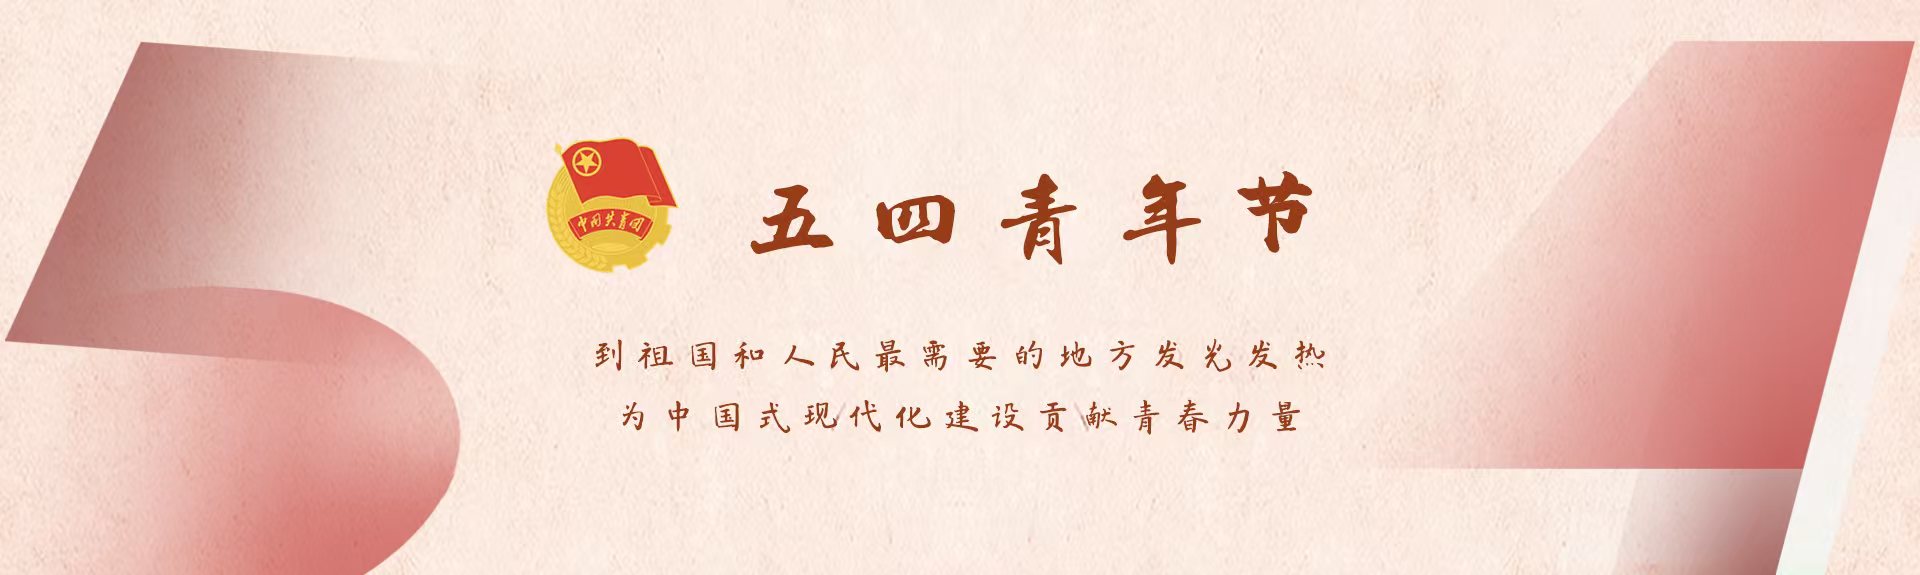 中国共青团
五四青年节
到祖国和人民最需要的地方发光发热
为中国式现代化建设贡献青春力量
5
4